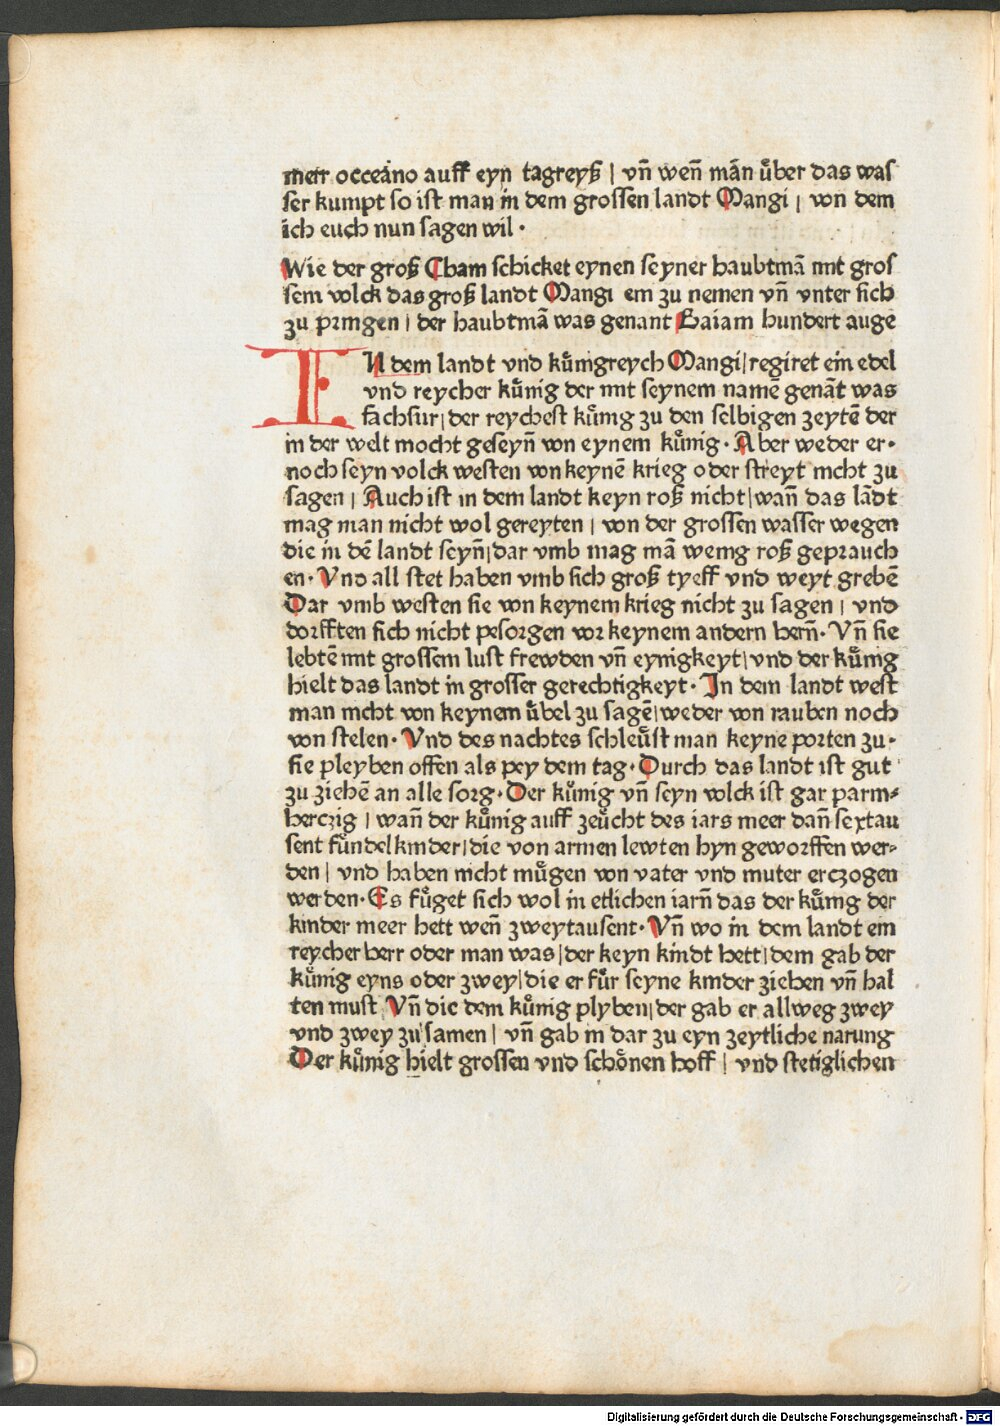 merr occeäno auff eyn tagreyß | vn̄ wen̄ mān über das was
ser kumpt so ist man in dem grossen landt Mangi | von dem
ich euch nun sagen wil ·
Wie der groß Cham schicket eynen seyner haubtmā mit gros
sem volck das groß landt Mangi ein zu nemen vn̄ vnter sich
zu pringen | der haubtmā was genant Baiam hundert auge
IN dem landt vnd künigreych Mangi | regiret ein edel
vnd reycher künig der mit seynem namē genāt was
fachfur | der reychest künig zu den selbigen zeytē der
in der welt mocht geseyn̄ von eynem künig · Aber weder er ·
noch seyn volck westen von keynē krieg oder streyt nicht zu
sagen | Auch ist in dem landt keyn roß nicht | wan̄ das lādt
mag man nicht wol gereyten | von der grossen wasser wegen
die in dē landt seyn̄ | dar vmb mag mā wenig roß geprauch
en · Vnd all stet haben vmb sich groß tyeff vnd weyt grebē
Dar vmb westen sie von keynem krieg nicht zu sagen | vnd
dorfften sich nicht pesorgen vor keynem andern hern̄ · Vn̄ sie
lebtē mit grossem lust frewden vn̄ eynigkeyt | vnd der künig
hielt das landt in grosser gerechtigkeyt · In dem landt west
man nicht von keynem übel zu sagē | weder von rauben noch
von stelen · Vnd des nachtes schleüst man keyne porten zu ·
sie pleyben offen als pey dem tag · Durch das landt ist gut
zu ziehē an alle sorg · Der künig vn̄ seyn volck ist gar parm⸗
herczig | wan̄ der künig auff zeücht des iars meer dan̄ sextau
sent fündelkinder | die von armen lewten hyn geworffen wer⸗
den | vnd haben nicht mügen von vater vnd muter erczogen
werden · Es füget sich wol in etlichen iarn̄ das der künig der
kinder meer hett wen̄ zweytausent · Vn̄ wo in dem landt ein
reycher herr oder man was | der keyn kindt hett | dem gab der
künig eyns oder zwey | die er für seyne kinder ziehen vn̄ hal
ten must Vn̄ die dem künig plyben | der gab er allweg zwey
vnd zwey zu samen | vn̄ gab in dar zu eyn zeytliche narung
Der künig hielt grossen vnd schönen hoff | vnd stetiglichen
Digitalisierung gefördert durch die Deutsche Forschungsgemeinschaft - DFG